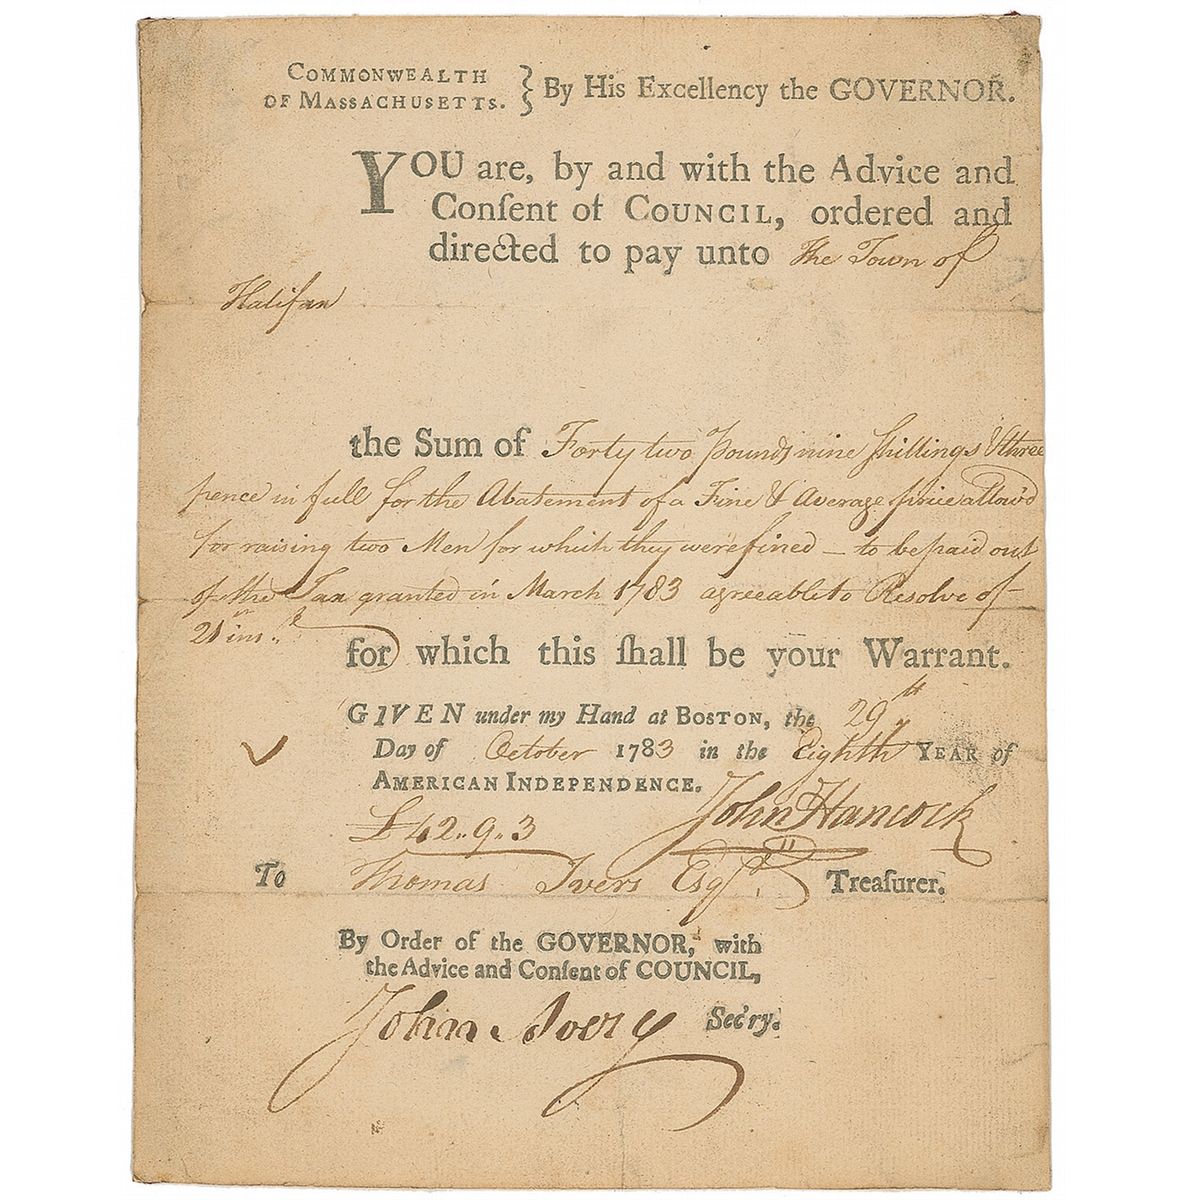 COMMONWEALTH
OF MASSACHUSETTS. } By His Excellency the GOVERNOR.
YOU are, by and with the Advice and
Conſent of COUNCIL, ordered and
directed to pay unto the Town of
Halifax
the Sum of Forty two Pounds nine ſhillings & three
pence in full for the Abatement of a Fine & Average price allow'd
for raising two Men for which they were fined – to be paid out
of the Tax granted in March 1783 agreeable to Resolve of
21 inst.
for which this ſhall be your Warrant.
GIVEN under my Hand at BOSTON, the 29th
Day of October 1783 in the Eighth YEAR of
AMERICAN INDEPENDENCE.
John Hancock
£42..9..3
To Thomas Ivers Esqr. Treaſurer.
By Order of the GOVERNOR, with
the Advice and Conſent of COUNCIL,
John Avery Sec'ry.